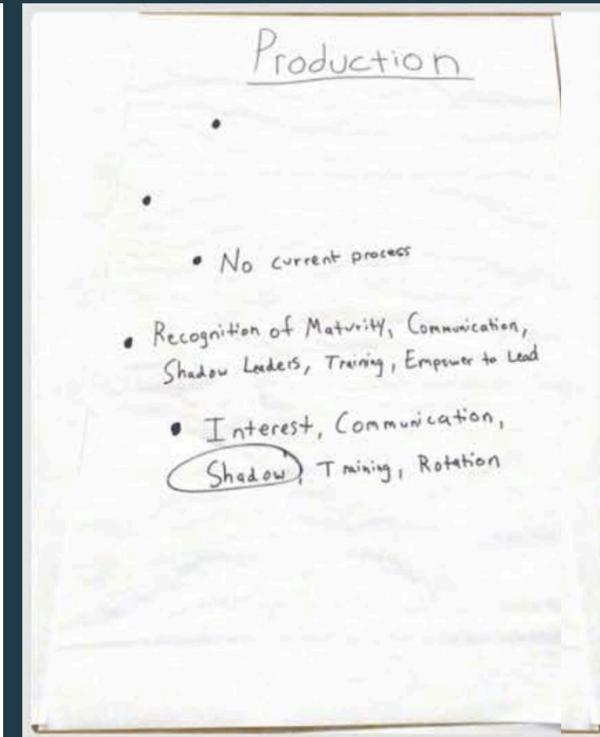 Production
•
•
• No current process
• Recognition of Maturity, Communication,
Shadow Leaders, Training, Empower to Lead
• Interest, Communication,
Shadow, Training, Rotation